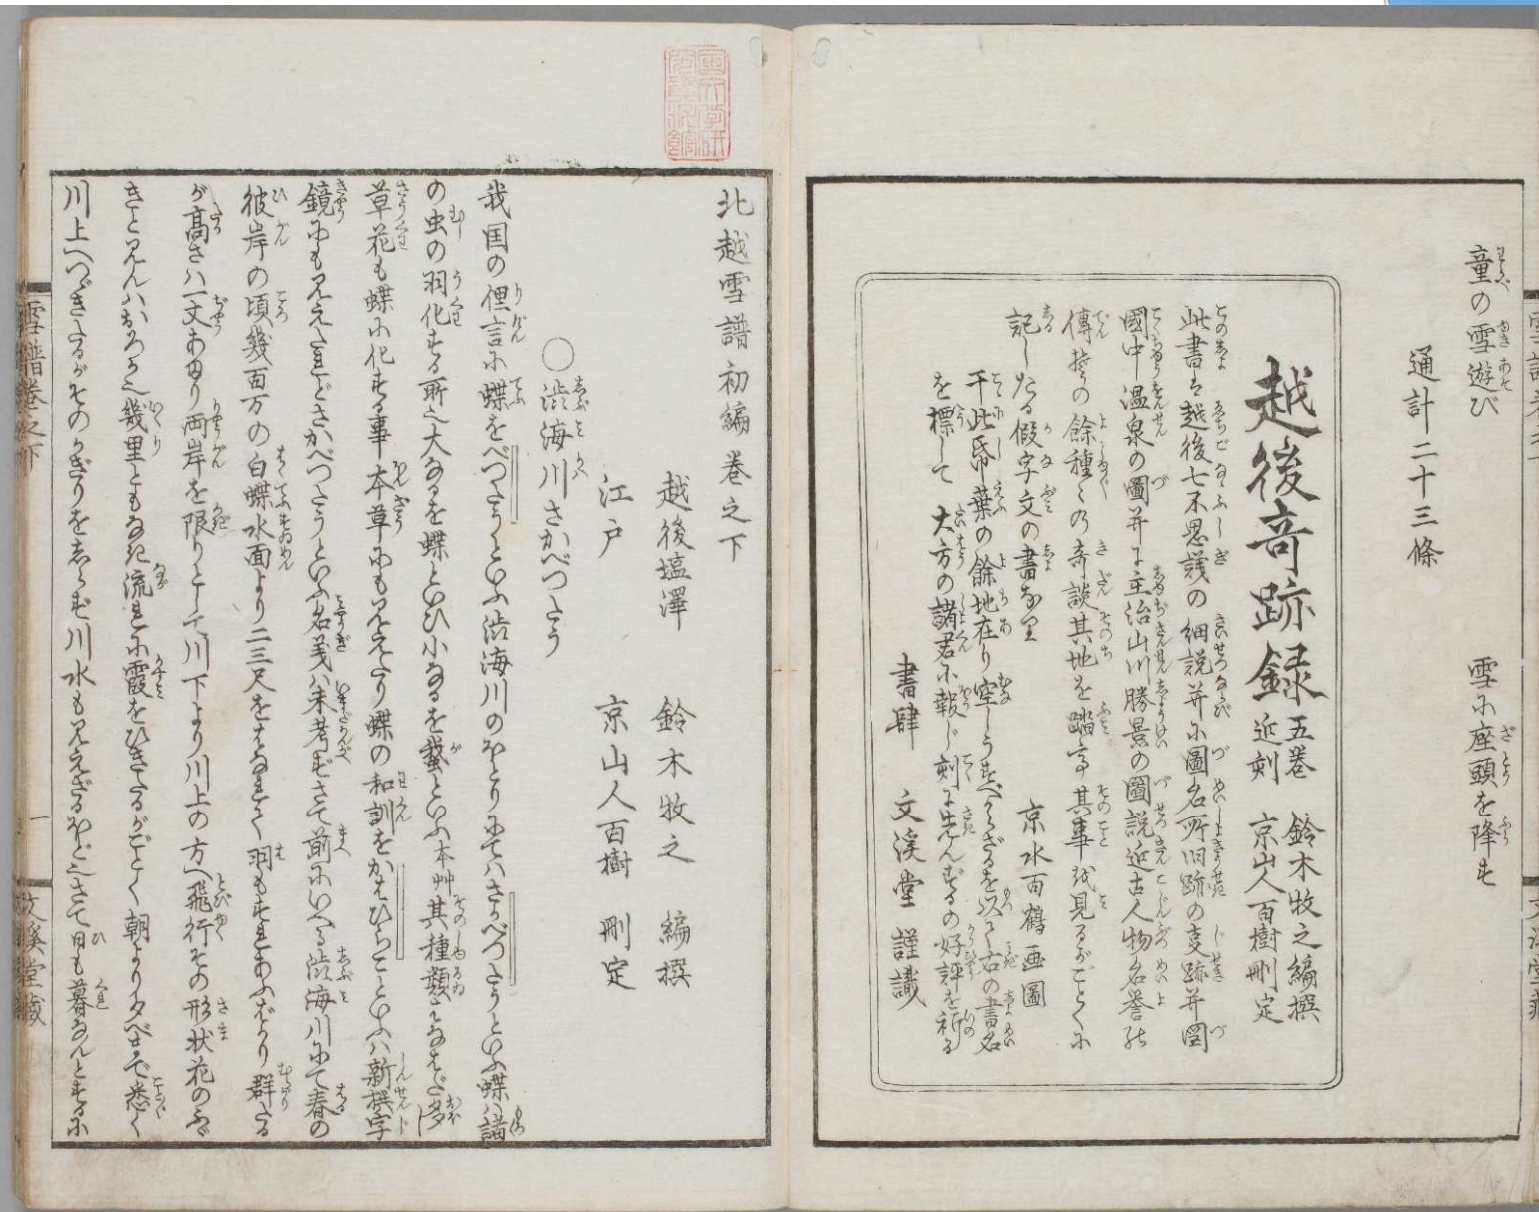 童の雪遊び　雪に座頭を降す
通計二十三條
越後奇跡録 五巻 近刻 鈴木牧之編撰 京山人百樹刪定
此書は越後七不思議の細説并に圖名所旧跡の支跡并圖
國中温泉の圖并に主治山川勝景の圖説近古人物名誉の
傳等の餘種々の奇談其地を踏て其事を見るがごとくに
記したる假字文の書なり 京水百鶴画圖
于此帋葉の餘地在り空しうすべからざるを以て右の書名
を標して 大方の諸君に報じ刻に先んずるの好評を祈る
書肆 文溪堂 謹識
北越雪譜初編巻之下
越後塩澤 鈴木牧之 編撰
江戸 京山人百樹 刪定
○渋海川さかべつたう
我国の俚言に蝶をべつたうといふ渋海川のほとりにてはさかべつたうといふ蝶は諸
の虫の羽化する所也大なるを蝶といひ小なるを蛾といふ本艸其種類はなはだ多し
草花も蝶に化する事本草にも見えたり蝶の和訓をかはひらこといふは新撰字
鏡にも見えたれどさかべつたうといふ名義は未考ずさて前にいへる渋海川にて春の
彼岸の頃幾百万の白蝶水面より二三尺をはなれて羽もすれあふばかり群たる
が高さは一丈あまり両岸を限りとして川下より川上の方へ飛行その形状花のふゞ
きと見んはおろか也幾里ともなき流に霞をひきたるがごとく朝より夕べまで悉く
川上へつゞきたるがそのかぎりをしらず川水も見えざるほど也さて日も暮なんとするに
雪譜巻之下
一
文溪堂藏